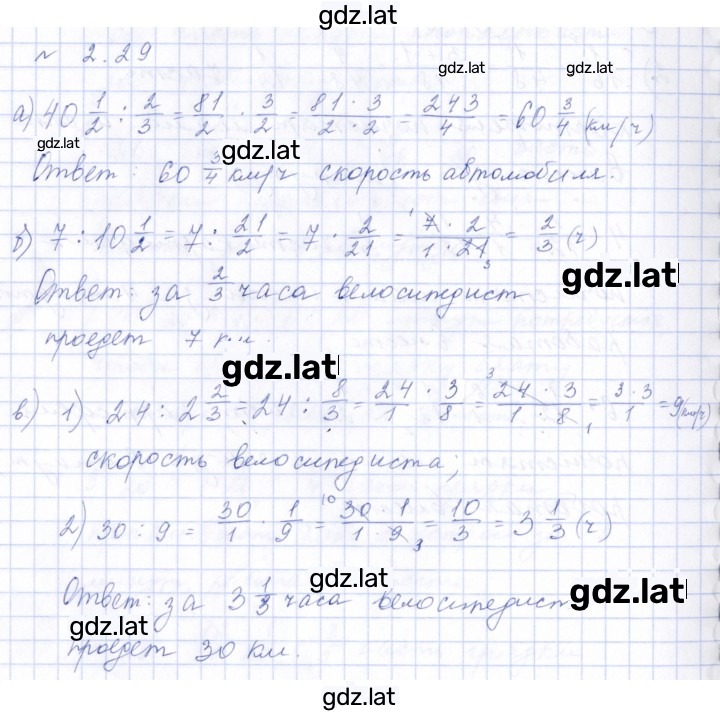 gdz.lat
№ 2.29
gdz.lat gdz.lat
а) 40 1/2 : 2/3 = 81/2 · 3/2 = (81 · 3)/(2 · 2) = 243/4 = 60 3/4 (км/ч)
gdz.lat gdz.lat
Ответ: 60 3/4 км/ч скорость автомобиля.
б) 7 : 10 1/2 = 7 : 21/2 = 7 · 2/21 = (7 · 2)/(1 · 21) = 2/3 (ч)
gdz.lat
Ответ: за 2/3 часа велосипедист
проедет 7 км.
gdz.lat
в) 1) 24 : 2 2/3 = 24 : 8/3 = 24/1 · 3/8 = (24 · 3)/(1 · 8) = (3 · 3)/1 = 9 (км/ч)
скорость велосипедиста;
2) 30 : 9 = 30/1 · 1/9 = (30 · 1)/(1 · 9) = 10/3 = 3 1/3 (ч)
gdz.lat gdz.lat
Ответ: за 3 1/3 часа велосипедист
gdz.lat
проедет 30 км.
gdz.lat